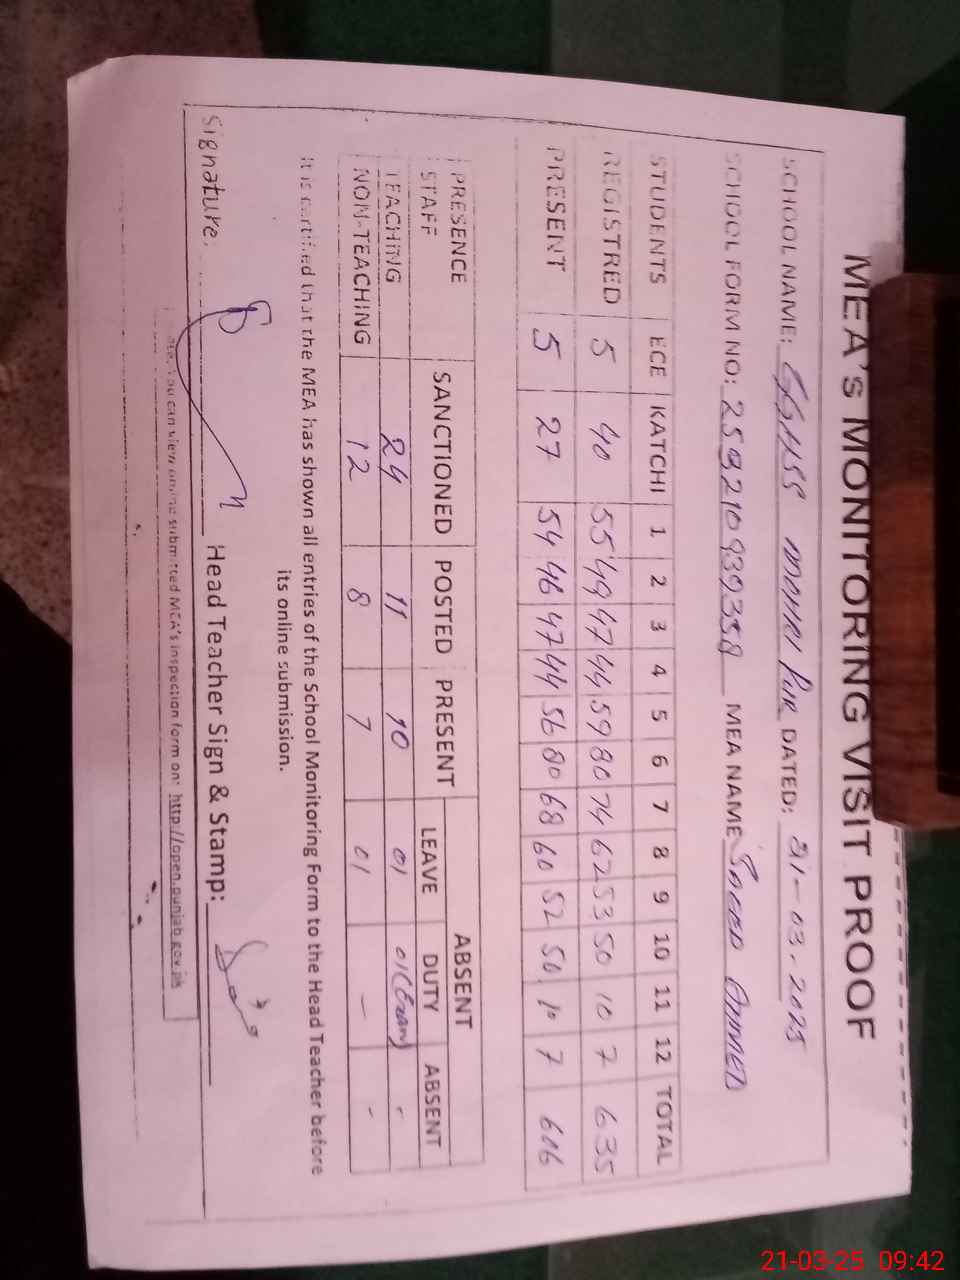 MEA's MONITORING VISIT PROOF
SCHOOL NAME: GGHSS MOHRI PUR DATED: 21-03-2025
SCHOOL FORM NO: 259210939358 MEA NAME Saeed Ahmed
STUDENTS ECE KATCHI 1 2 3 4 5 6 7 8 9 10 11 12 TOTAL
REGISTRED 5 40 55 49 47 44 59 80 74 62 53 50 10 7 635
PRESENT 5 27 54 46 47 44 56 80 68 60 52 50 10 7 606
PRESENCE STAFF SANCTIONED POSTED PRESENT ABSENT
LEAVE DUTY ABSENT
TEACHING 24 11 10 01 01(Exam) -
NON-TEACHING 12 8 7 01 - -
It is certified that the MEA has shown all entries of the School Monitoring Form to the Head Teacher before
its online submission.
Signature: Head Teacher Sign & Stamp:
Note: You can view online submitted MEA's inspection form on: http://open.punjab.gov.pk
21-03-25 09:42